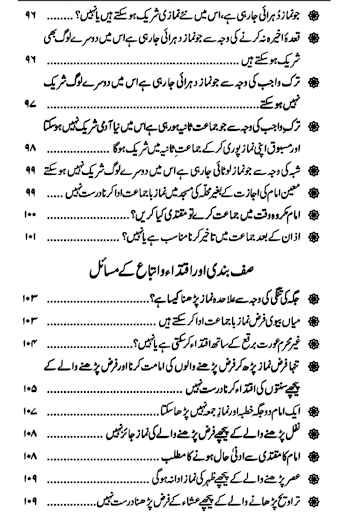 جو نماز دُہرائی جارہی ہے، اس میں نئے نمازی شریک ہوسکتے ہیں یا نہیں؟ ......... ۹۶
قعدۂ اخیرہ نہ کرنے کی وجہ سے جو نماز دہرائی جارہی ہے اس میں دوسرے لوگ بھی
شریک ہوسکتے ہیں ......................................... ۹۶
ترک واجب کی وجہ سے جو نماز دہرائی جارہی ہے اس میں دوسرے لوگ شریک
نہیں ہوسکتے ............................................. ۹۷
ترکِ واجب کی وجہ سے جو جماعت ثانیہ ہورہی ہے اس میں نیا آدمی شریک نہیں ہوسکتا
اور مسبوق اپنی نماز پوری کرکے جماعتِ ثانیہ میں شریک ہوگا ............. ۹۸
شبہ کی وجہ سے جو نماز لوٹائی جارہی ہے اس میں دوسرے لوگ شریک نہیں ہوسکتے ۹۹
معین امام کی اجازت کے بغیر محلّہ کی مسجد میں نماز باجماعت ادا کرنا درست نہیں ..... ۹۹
امام مکروہ وقت میں جماعت کرے تو مقتدی کیا کریں؟ ................ ۱۰۰
اذان کے بعد جماعت میں تاخیر کرنا مناسب ہے یا نہیں؟ .............. ۱۰۱
صف بندی اور اقتداء و اتباع کے مسائل
جگہ کی تنگی کی وجہ سے علاحدہ نماز پڑھنا کیسا ہے؟ .................. ۱۰۳
میاں بیوی فرض نماز باجماعت ادا کرسکتے ہیں ..................... ۱۰۳
غیر محرم عورت برقع کے ساتھ اقتداء کرسکتی ہے یا نہیں؟ .............. ۱۰۴
تنہا فرض نماز پڑھ کر فرض پڑھنے والوں کی امامت کرنا اور فرض پڑھنے والے کے
پیچھے سنتوں کی اقتداء کرنا درست نہیں ......................... ۱۰۵
ایک امام دو جگہ خطبہ اور نماز جمعہ نہیں پڑھا سکتا .................... ۱۰۷
نفل پڑھنے والے کے پیچھے فرض پڑھنے والے کی نماز جائز نہیں .......... ۱۰۸
امام کا مقتدی سے ادنیٰ حال ہونے کا مطلب ..................... ۱۰۸
عصر پڑھنے والے کے پیچھے ظہر کی نماز ادا نہ ہوگی .................... ۱۰۹
تراویح پڑھانے والے کے پیچھے عشاء کے فرض پڑھنا درست نہیں ........ ۱۰۹